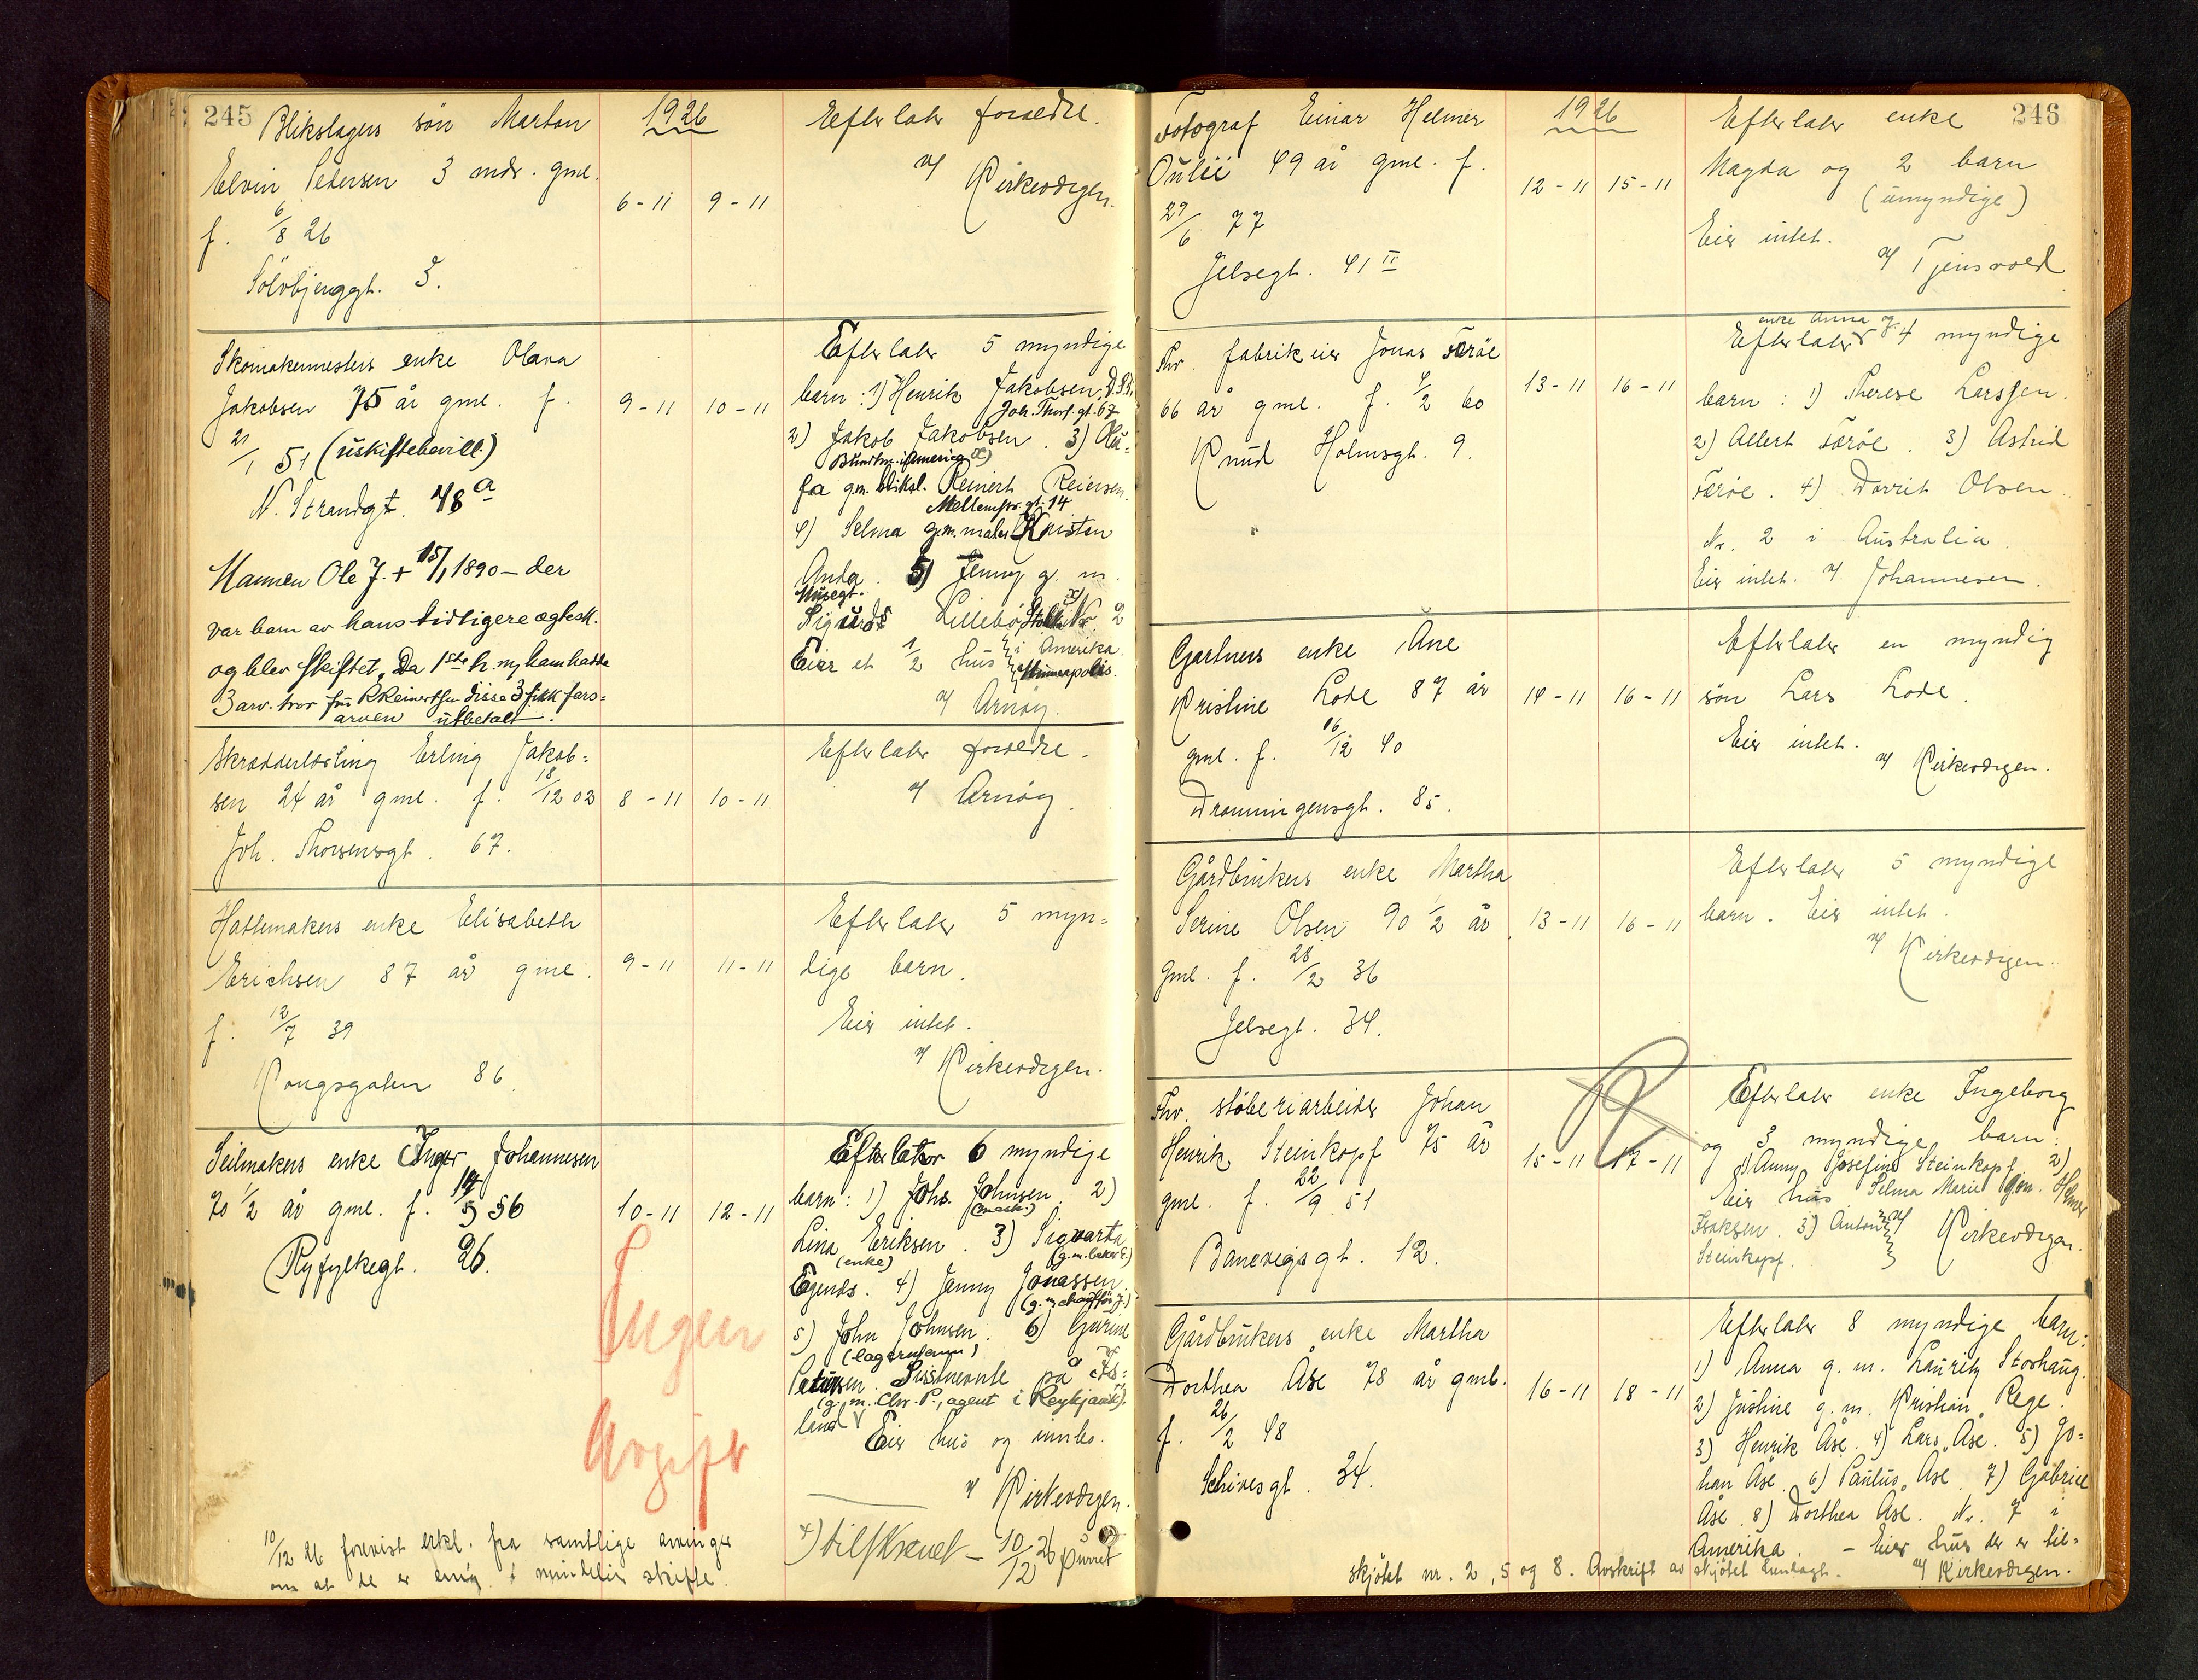 245
Blikslagers sön Marton
Elvin Pedersen 3 mdr. gml.
f. 6/8 26
Sölvbjerggt. 3.
1926
6-11 9-11
Efterlater foreldre.
v/ Kirkevergen.
Skomakermesters enke Olava
Jakobsen 75 år gml. f.
21/1 51 (uskiftebevill.)
N. Strandgt. 48 a
9-11 10-11
Mannen Ole J. + 15/1 1890 - der
var barn av hans tidligere ægtesk.
og blev skiftet. Da 1ste h. my ham hadde
3 arv. tror fru R Reinertsen disse 3 fikk fars=
arven utbetalt.
Efterlater 5 myndige
barn: 1) Henrik Jakobsen, D.S.D.,
Joh. Thors. gt. 67
2) Jakob Jakobsen. 3) Olu=
Bundtm. i Amerika x)
fa g.m. bliksl. Reinert Reiersen.
Mellemstr. gt. 14
4) Selma g.m. maler Kristen
Anda. 5) Jenny g. m.
Musegt.
Sigurds Lillebö, Nr 2
i Amerika
Eier et 1/2 hus Minneapolis.
v/ Arnöy.
Skredderlærling Erling Jakob=
sen 24 år gml. f. 18/12 02
Joh. Thorsensgt. 67.
8-11 10-11
Efterlater foreldre.
v/ Arnöy.
Hattemakers enke Elisabeth
Erichsen 87 år gml.
f. 12/7 39
Kongsgaten 86.
9-11 11-11
Efterlater 5 myn=
dige barn.
Eier intet.
v/ Kirkevergen.
Seilmakers enke Inger Johannesen
70 1/2 år gml. f. 14/5 56
Ryfylkegt. 26.
10-11 12-11
Ingen
Avgift
Efterlater 6 myndige
barn: 1) Johs. Johnsen. 2)
(mask.)
Lina Eriksen. 3) Sigvarta
(enke) (g.m. baker E.)
Egends. 4) Jenny Jonassen.
(g.m. chaufför J.)
5) John Johnsen. 6) Gurine
(lagermann)
Petersen. Sistnevnte på Is=
(g. m. Chr. P., agent i Reykjavik).
land
Eier hus og innbo.
v/ Kirkevergen.
x) tilskrevet - 10/12 26 purret
10/12 26 forevist erkl. fra samtlige arvinger
om at de er enig i mindelig skifte.
Fotograf Einar Helmer
Oulie 49 år gml. f.
29/6 77
Jelsegt. 41 II
1926
12-11 15-11
246
Efterlater enke
Magda og 2 barn
(umyndige)
Eier intet.
v/ Tjensvold
Fhv. fabrikeier Jonas Færöe
66 år gml. f. 4/2 60
Knud Holmsgt. 9.
13-11 16-11
enke Anna og
Efterlater 4 myndige
barn: 1) Therese Larssen.
2) Allert Færöe. 3) Astrid
Færöe. 4) Dorrit Olsen.
Nr. 2 i Australia.
Eier intet. v/ Johannesen.
Gartners enke Ane
Kristine Lode 87 år
gml. f. 16/12 40
Dronningensgt. 85.
14-11 16-11
Efterlater en myndig
sön Lars Lode.
Eier intet.
v/ Kirkevergen.
Gårdbrukers enke Martha
Serine Olsen 90 1/2 år
gml. f. 28/2 36
Jelsegt. 34.
13-11 16-11
Efterlater 5 myndige
barn. Eier intet.
v/ Kirkevergen.
Fhv. stöberiarbeider Johan
Henrik Steinkopf 75 år
gml. f. 22/9 51
Banevigsgt. 12.
15-11 17-11
Efterlater enke Ingeborg
og 3 myndige barn:
1) Anny Josefine Steinkopf 2)
Eier hus Selma Marie g.m. Helmer
Isaksen. 3) Anton
Steinkopf.
v/ Kirkevergen.
Gårdbrukers enke Martha
Dorthea Åse 78 år gml.
f. 26/2 48
Schivesgt. 34.
16-11 18-11
Efterlater 8 myndige barn:
1) Anna g. m. Lauritz Storhaug.
2) Justine g. m. Kristian Rege.
3) Henrik Åse. 4) Lars Åse. 5) Jo=
han Åse. 6) Paulus Åse. 7) Gabriel
Åse. 8) Dorthea Åse. Nr. 7 i
Amerika. - Eier hus der er til=
skjötet nr. 2, 5 og 8. Avskrift av skjötet fremlagt.
v/ Kirkevergen.